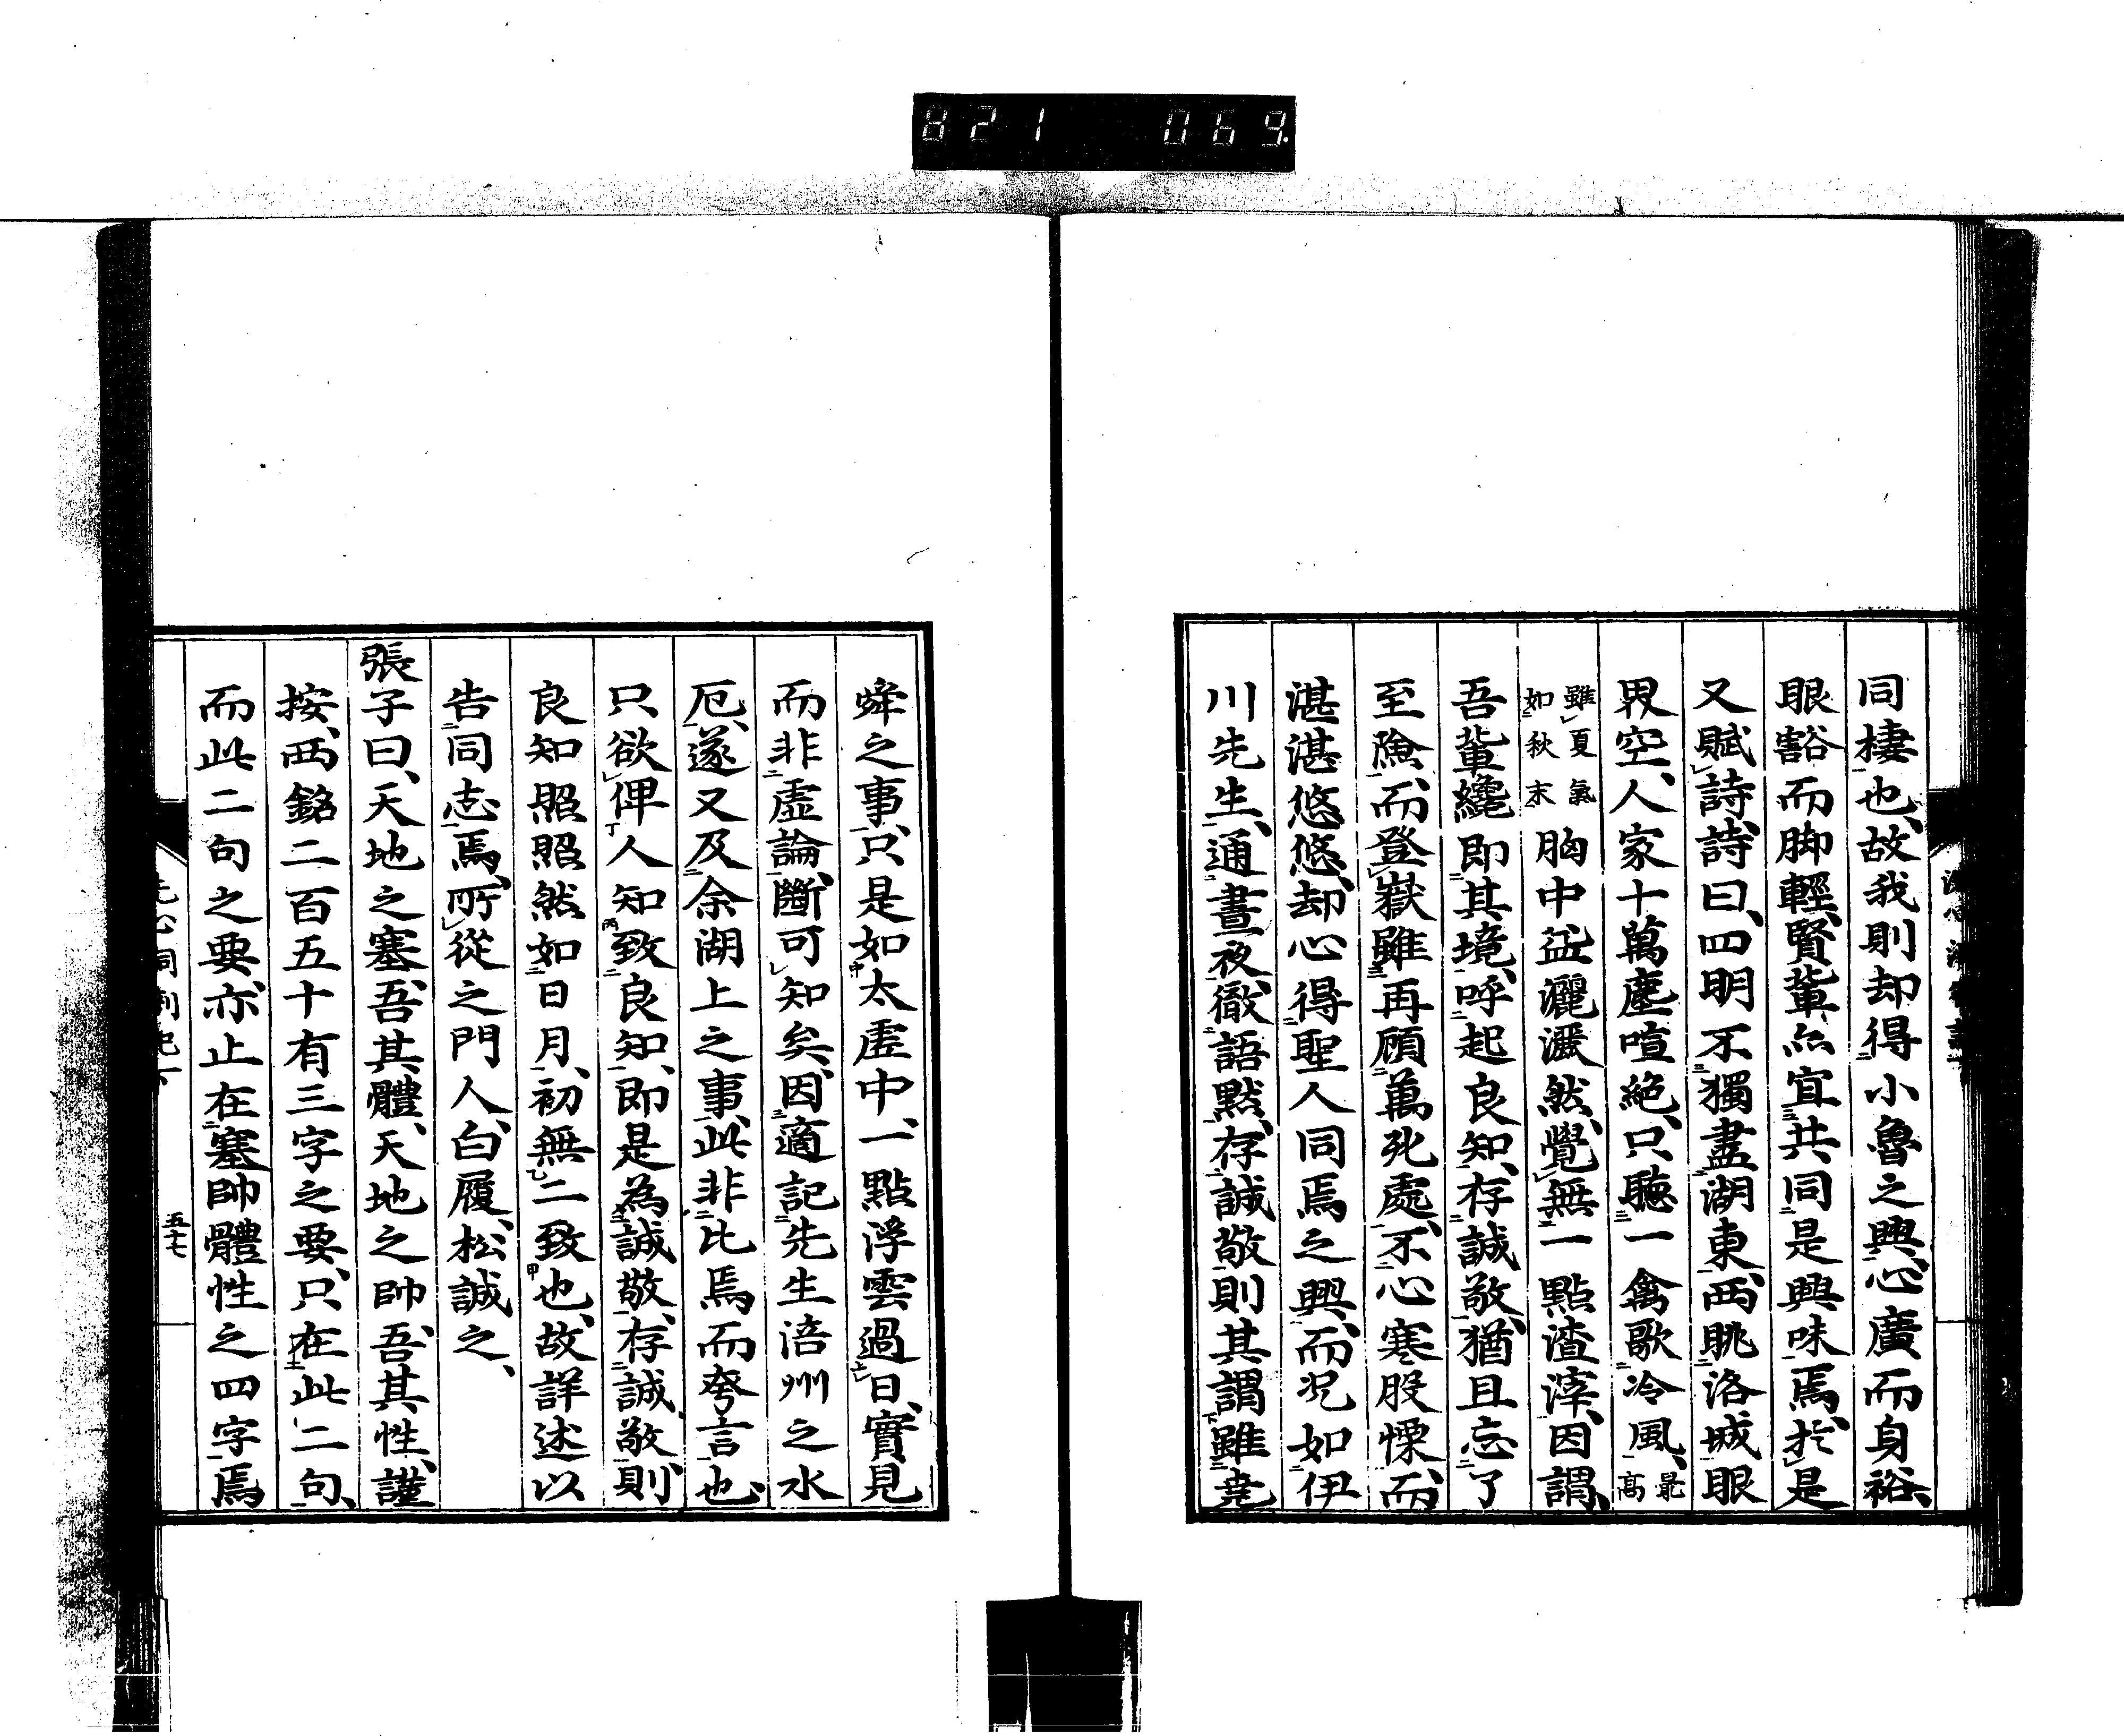 821 069
同棲也、故我則却得小魯之興、心廣而身裕、
眼豁而脚輕、賢輩亦宜共同是興味焉、於是
又賦詩、詩曰、四明不獨盡湖東、西眺洛城眼
界空、人家十萬塵喧絶、只聽一禽歌冷風、最高
雖夏氣如秋末胸中益灑灑然、覺無一點渣滓、因謂、
吾輩纔即其境、呼起良知、存誠敬、猶且忘了
至險、而登嶽雖再顧萬死處、不心寒股慄、而
湛湛悠悠、却心得聖人同焉之興、而况如伊
川先生、通晝夜、徹語默、存誠敬、則其謂雖堯
舜之事、只是如太虛中、一點浮雲過日、實見
而非虛論、斷可知矣、因適記先生涪州之水
厄、遂又及余湖上之事、此非比焉而夸言也、
只欲俾人知致良知、即是為誠敬、存誠敬、則
良知照照然如日月、初無二致也、故詳述以
告同志焉、所從之門人、白履、松誠之、
張子曰、天地之塞、吾其體、天地之帥、吾其性、謹
按、西銘二百五十有三字之要、只在此二句、
而此二句之要、亦止在塞帥體性之四字焉
五十七